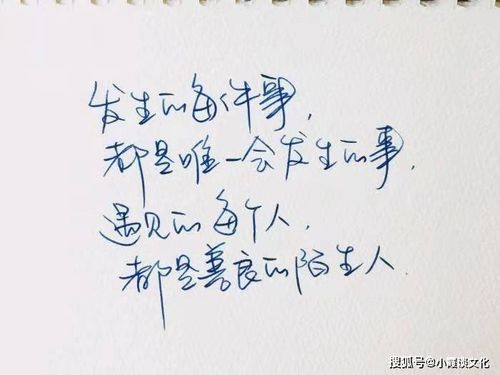 发生的每件事,
都是唯一会发生的事,
遇见的每个人,
都是善良的陌生人.
搜狐号@小霞谈文化